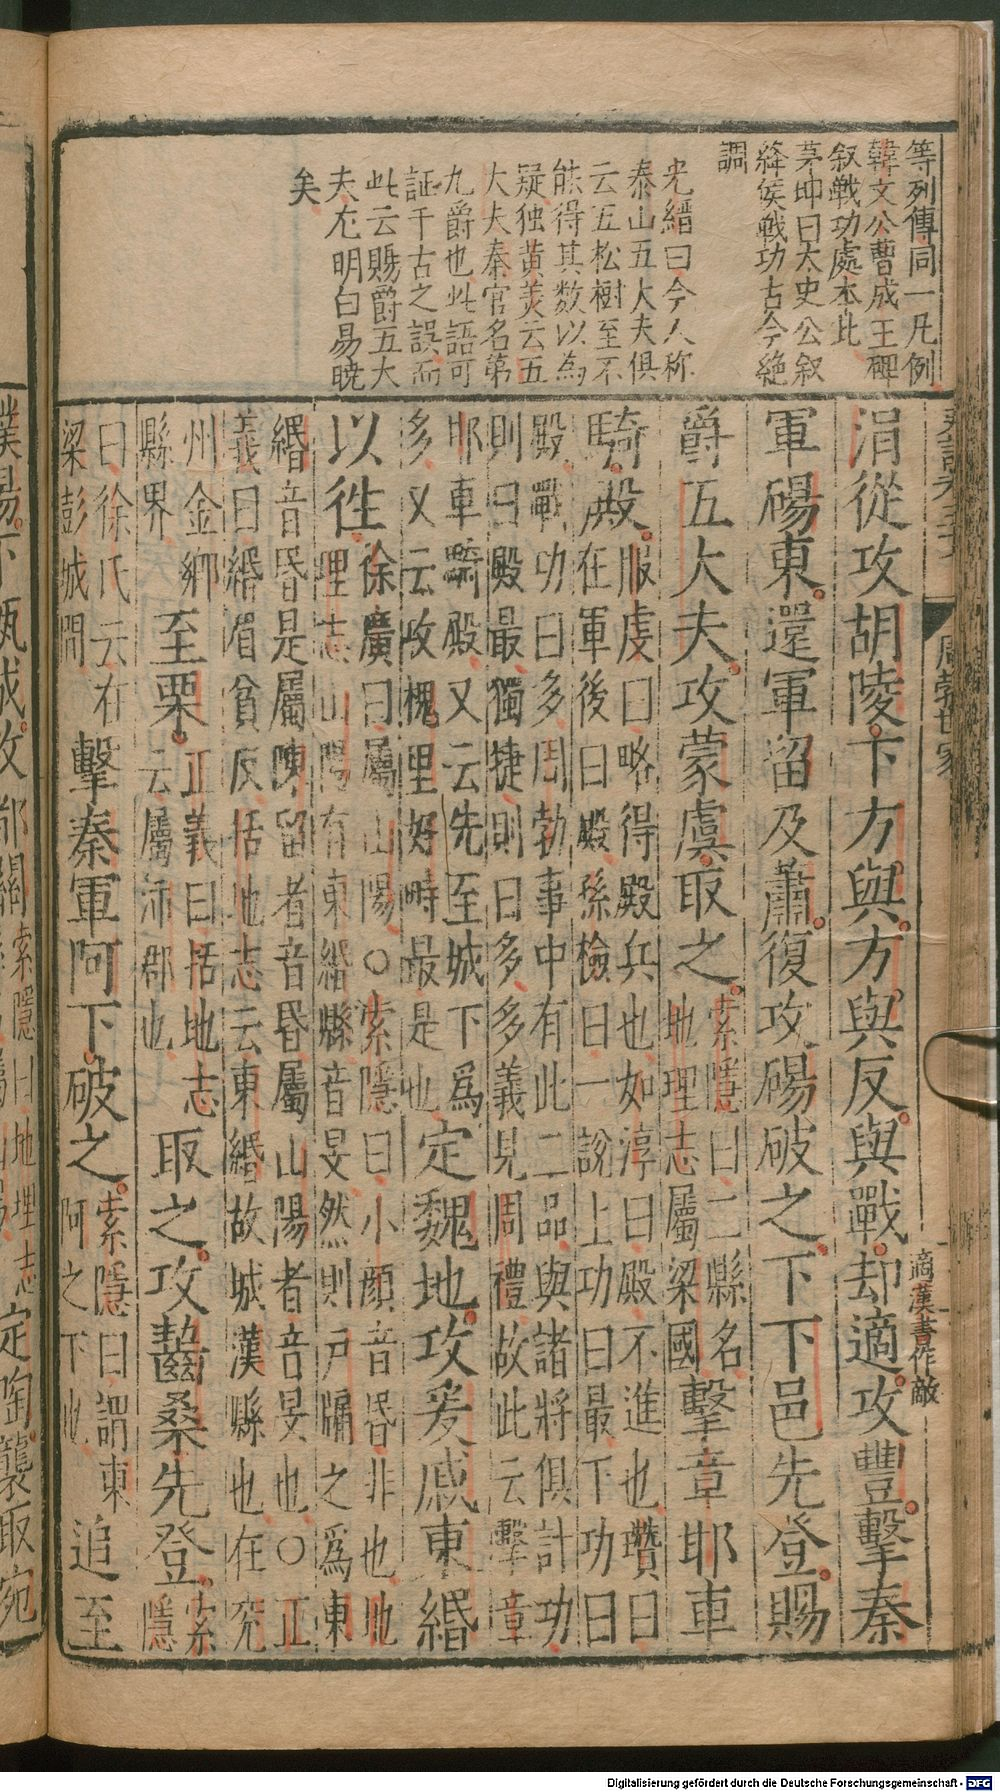 等列傳同一凡例
韓文公曹成王碑
叙戰功處本此
茅坤曰太史公叙
絳侯戰功古今絶
調
光縉曰今人称
泰山五大夫俱
云五松樹至不
能得其数以為
疑独黄美云五
大夫秦官名第
九爵也此語可
証千古之誤而
此云賜爵五大
夫尤明白易曉
矣
周勃世家
適漢書作敵
涓從攻胡陵下方與方與反與戰却適攻豐擊秦
軍碭東還軍留及蕭復攻碭破之下下邑先登賜
爵五大夫攻蒙虞取之
索隱曰二縣名
地理志屬梁國
擊章邯車
騎殿
服虔曰略得殿兵也如淳曰殿不進也瓚曰
在軍後曰殿孫檢曰一說上功曰最下功曰
殿戰功曰多周勃事中有此二品與諸將俱計功
則曰殿最獨捷則曰多多義見周禮故此云擊章
邯車騎殿又云先至城下爲
多又云攻槐里好畤最是也
定魏地攻爰戚東緡
以徃
徐廣曰屬山陽○索隱曰小顏音昏非也地
理志山陽有東緡縣音旻然則戸牖之爲東
緡音昏是屬陳留者音昏屬山陽者音旻也○正
義曰緡眉貧反括地志云東緡故城漢縣也在兖
州金鄉
縣界
至栗
正義曰括地志
云屬沛郡也
取之攻齧桑先登
索
隱
曰徐氏云在
梁彭城間
擊秦軍阿下破之
索隱曰謂東
阿之下也
追至
濮陽下甄城攻都關
索隱曰地理志
定陶襲取宛
Digitalisierung gefördert durch die Deutsche Forschungsgemeinschaft - DFG